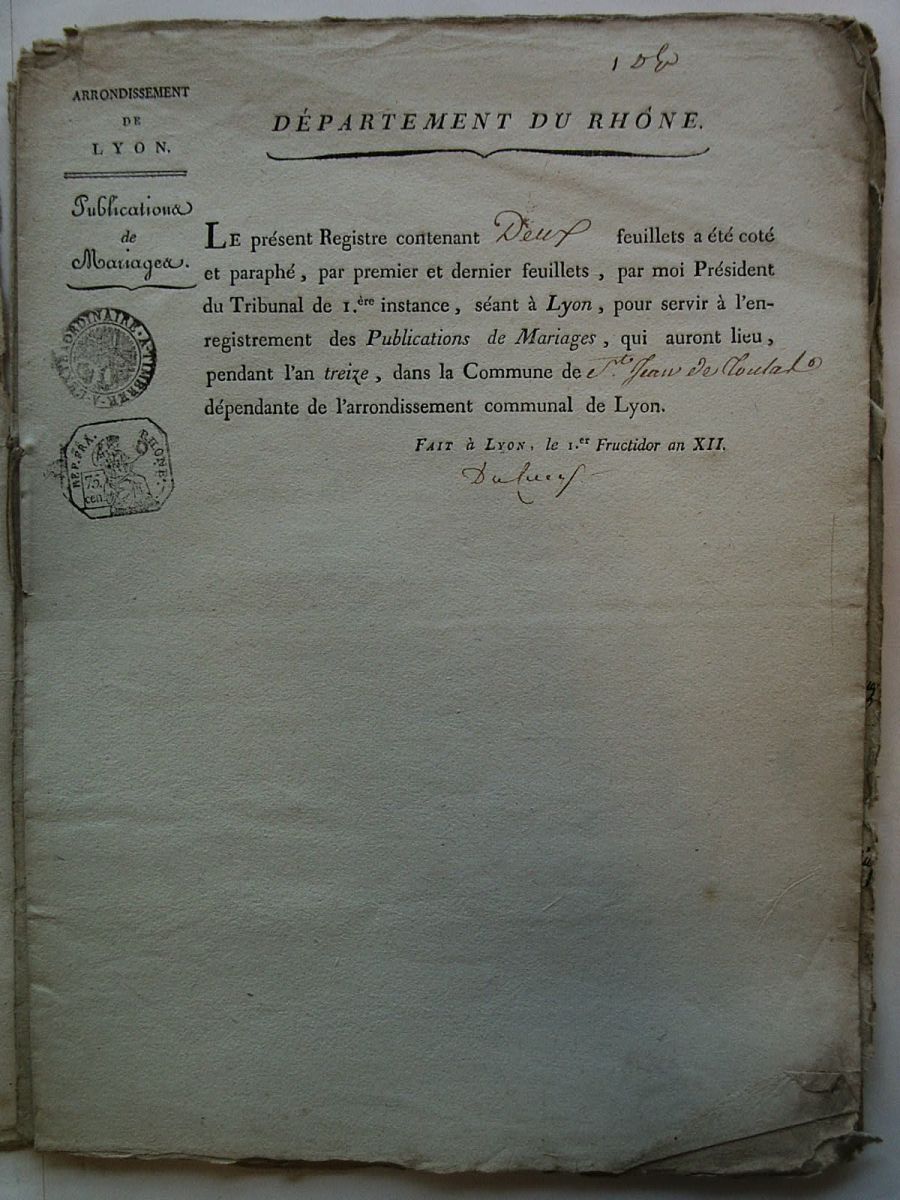 1
ARRONDISSEMENT
DE
LYON.
DÉPARTEMENT DU RHÔNE.
Publications
de
Mariages.
LE présent Registre contenant Deux feuillets a été coté
et paraphé, par premier et dernier feuillets, par moi Président
du Tribunal de 1.ère instance, séant à Lyon, pour servir à l'en-
registrement des Publications de Mariages, qui auront lieu,
pendant l'an treize, dans la Commune de St. Jean de Toulas
dépendante de l'arrondissement communal de Lyon.
FAIT à LYON, le 1.er Fructidor an XII.
A TIMBRER A L'EXTRAORDINAIRE
REP. FRA.
RHONE.
75.
cen.